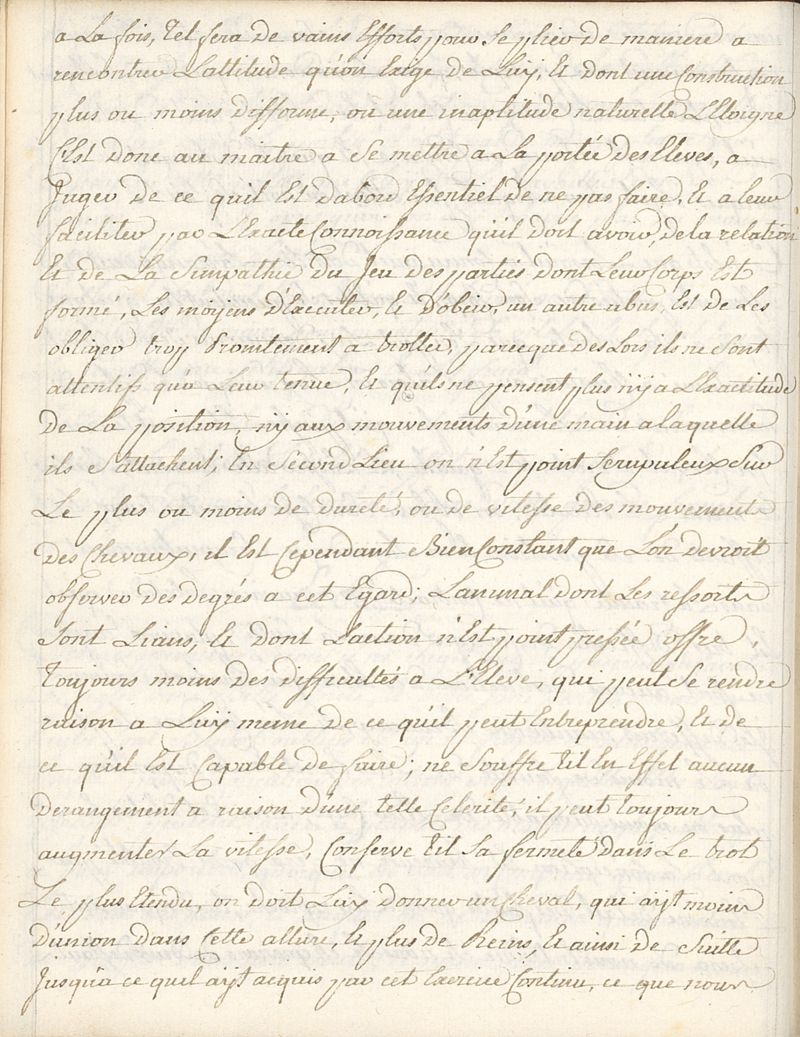 a La fois, Tel fera de vains Efforts pour se plier de maniere a
rencontrer L'attitude qu'on Exige de Luy, Et dont une Construction
plus ou moins difforme, ou une inaptitude naturelle L'Eloigne
C'Est donc au maitre a se mettre a La portée des Eleves, a
Juger de ce quil Est dabord Essentiel de ne pas faire, Et a leur
faciliter par L'Exacte Connoissance qu'il doit avoir, de la relation
Et de La Simpathie du Jeu des parties dont Leur Corps Est
formé, Les moyens d'Executer, Et D'obeir, un autre abus, Est de Les
obliger trop Promtement a trotter, parceque des Lors ils ne sont
attentifs qu'a Leur tenue, Et qu'ils ne pensent plus n'y a L'Exactitude
de La position, n'y aux mouvements d'une main a laquelle
ils s'attachent; En Second Lieu on n'Est point Scrupuleux Sur
Le plus ou moins de dureté, ou de vitesse des mouvements
des Chevaux, il Est Cependant Bien Constant que L'on devroit
observer des degrés a cet Egard; L'animal dont Les ressorts
sont Lians, Et dont L'action n'Est point pressée offre,
Toujours moins des difficultés a L'Eleve, qui peut Se rendre
raison a Luy meme de ce qu'il peut Entreprendre, Et de
ce qu'il Est Capable de faire; ne Souffre t'il En Effet aucun
derangement a raison d'une telle Celerité, il peut Toujours
augmenter La vitesse, Conserve t'il Sa fermeté dans Le trot
Le plus Etendu, on doit Luy donner un Cheval, qui ayt moins
d'union dans Cette allure, Et plus de Reins, Et ainsi de Suitte
Jusqu'a ce quel ayt acquis par cet Exercice Continu, ce que nous